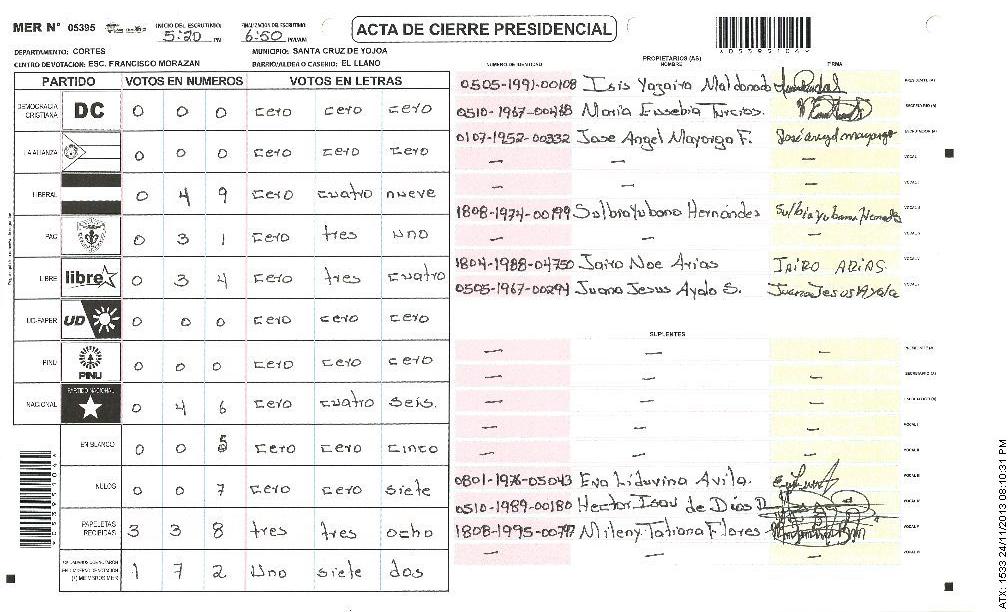 MER N° 05395 INICIO DEL ESCRUTINIO: 5:20 PM FINALIZACION DEL ESCRUTINIO: 6:50 PM/AM
ACTA DE CIERRE PRESIDENCIAL
DEPARTAMENTO: CORTES MUNICIPIO: SANTA CRUZ DE YOJOA
CENTRO DE VOTACION: ESC. FRANCISCO MORAZAN BARRIO/ALDEA O CASERIO: EL LLANO
PARTIDO VOTOS EN NUMEROS VOTOS EN LETRAS
DEMOCRACIA CRISTIANA DC 0 0 0 cero cero cero
LA ALIANZA 0 0 0 cero cero cero
LIBERAL 0 4 9 cero cuatro nueve
PAC 0 3 1 cero tres uno
LIBRE libre 0 3 4 cero tres cuatro
UD-FAPER UD 0 0 0 cero cero cero
PINU PINU 0 0 0 cero cero cero
NACIONAL PARTIDO NACIONAL 0 4 6 cero cuatro seis.
EN BLANCO 0 0 5 cero cero cinco
NULOS 0 0 7 cero cero siete
PAPELETAS RECIBIDAS 3 3 8 tres tres ocho
(+) MIEMBROS MER 1 7 2 Uno siete dos
PROPIETARIOS (AS)
NUMERO DE IDENTIDAD NOMBRE FIRMA
0505-1991-00108 Isis Yazaira Maldonado PRESIDENTE (A)
0510-1967-00468 Maria Eusebia Turcios. SECRETARIO (A)
0107-1952-00332 Jose Angel Mayorga F. José angel mayorga ESCRUTADOR (A)
— — — VOCAL I
— — — VOCAL II
1808-1974-00199 Sulbia Yubana Hernández VOCAL III
— — — VOCAL IV
1804-1988-04750 Jairo Noe Arias JAIRO ARIAS. VOCAL V
0505-1967-00294 Juana Jesus Ayala S. Juana Jesus Ayala
SUPLENTES
— — — PRESIDENTE (A)
— — — SECRETARIO (A)
— — — ESCRUTADOR (A)
— — — VOCAL I
— — — VOCAL II
0801-1976-05043 Eva Liduvina Avila.
0510-1989-00180 Hector Isau de Dios D.
1808-1995-00797 Mileny Tatiana Flores
— —
ATX: 1533 24/11/2013 08:10:31 PM